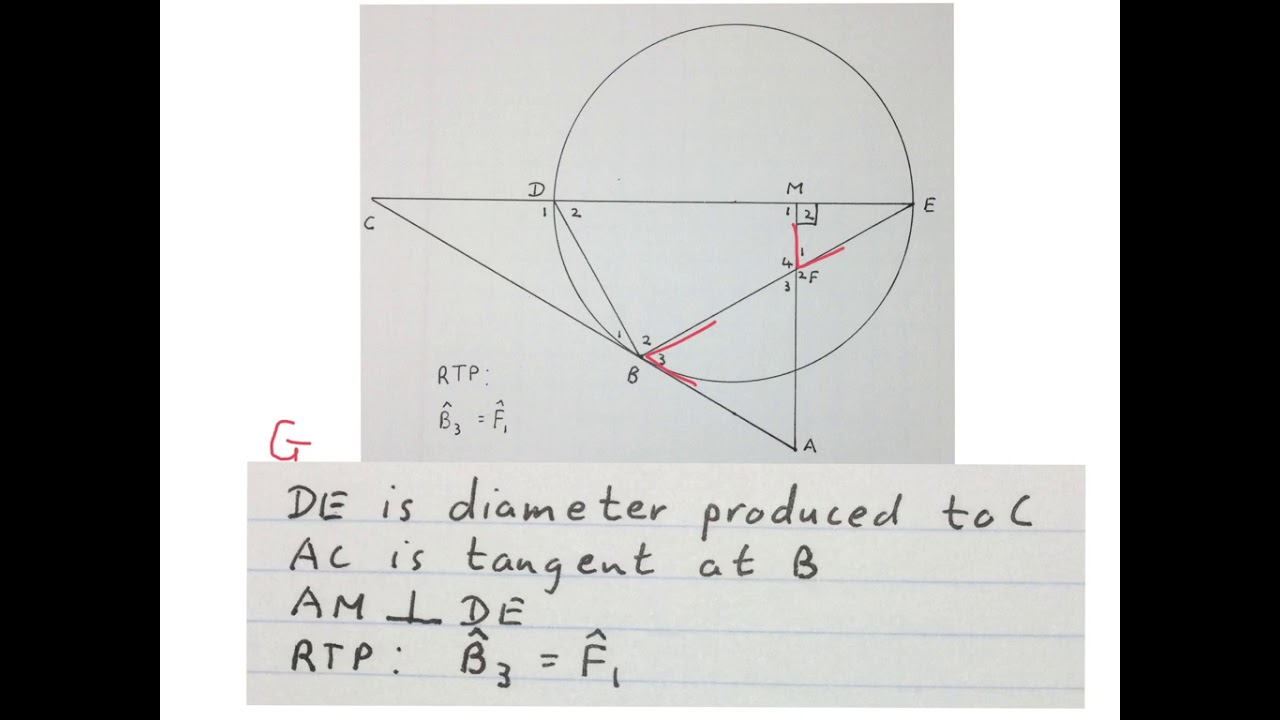 D
M
E
C
1 2
1 2
1
4
2 F
3
1 2
3
B
RTP:
B̂₃ = F̂₁
A
G
DE is diameter produced to C
AC is tangent at B
AM ⊥ DE
RTP: B̂₃ = F̂₁